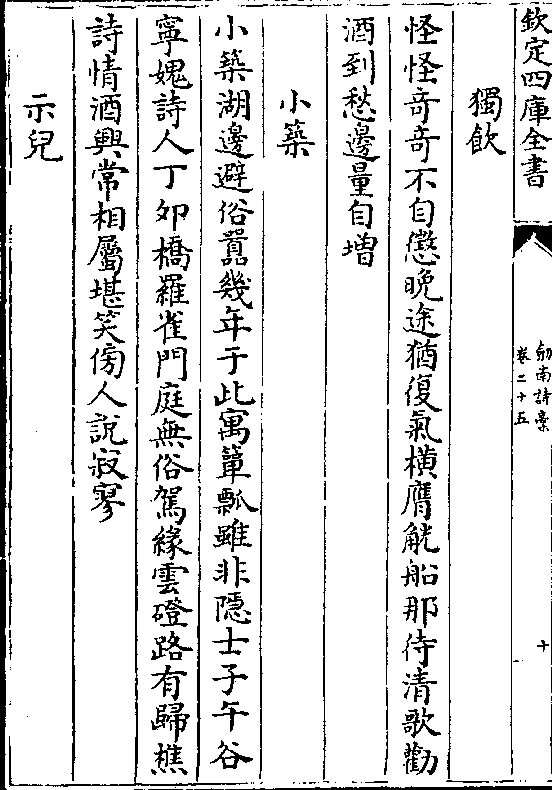 欽定四庫全書
劒南詩稾
卷二十五
十
獨飲
怪怪奇奇不自懲晩途猶復氣橫膺觥船那待清歌勸
酒到愁邊量自増
小築
小築湖邊避俗囂幾年于此寓簞瓢雖非隠士子午谷
寧媿詩人丁夘橋羅雀門庭無俗駕緣雲磴路有歸樵
詩情酒興常相屬堪笑傍人說寂寥
示兒